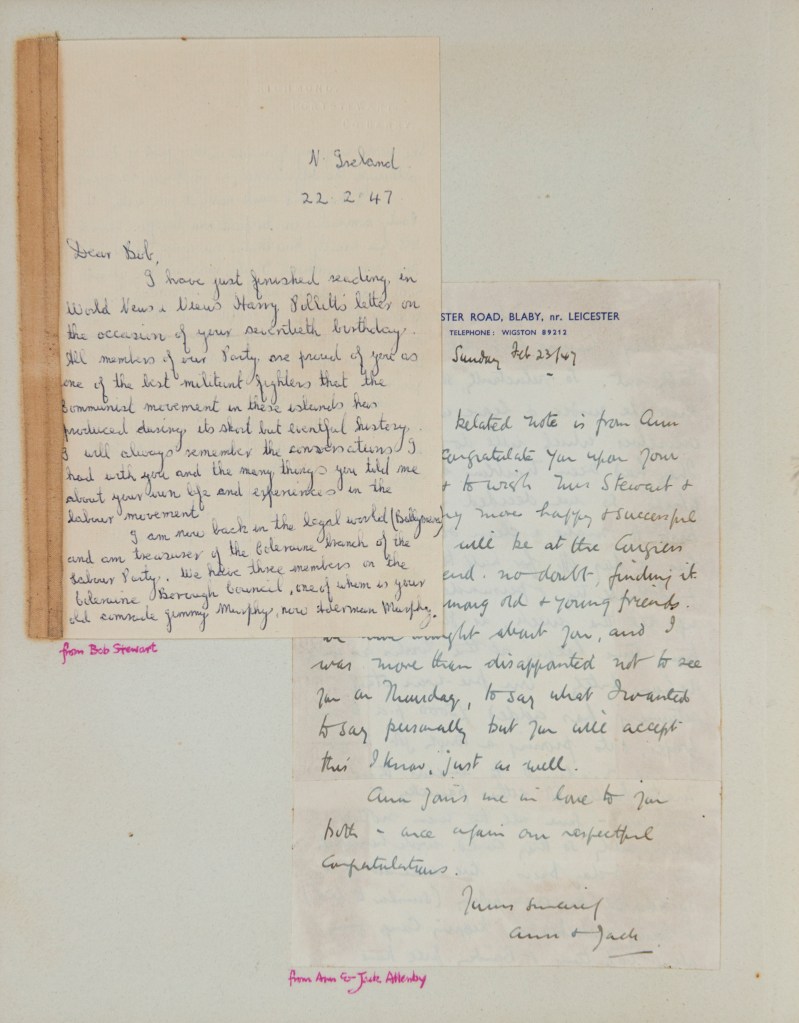 N. Ireland
22 · 2 · 47
Dear Bob,
I have just finished reading, in
World News & Views Harry Pollitt's letter on
the occasion of your seventieth birthday.
All members of our Party are proud of you as
one of the best militant fighters that the
Communist movement in these islands has
produced during its short but eventful history.
I will always remember the conversations I
had with you and the many things you told me
about your own life and experiences in the
labour movement
I am now back in the legal world
and am treasurer of the Coleraine Branch of the
Labour Party. We have three members on the
Coleraine Borough Council, one of whom is your
old comrade Jimmy Murphy, now Alderman Murphy.
from Bob Stewart
STER ROAD, BLABY, nr. LEICESTER
TELEPHONE: WIGSTON 89212
Sunday Feb 23/47
belated note is from Ann
congratulate you upon your
& to wish Mrs Stewart &
more happy & successful
will be at the
end. no doubt, finding it
among old & young friends.
thought about you, and I
was more than disappointed not to see
you on Thursday, to say what I wanted
to say personally but you will accept
this I know, just as well.
Ann joins me in love to you
both - once again our respectful
congratulations.
Yours sincerely
Ann & Jack
from Ann & Jack Attenby